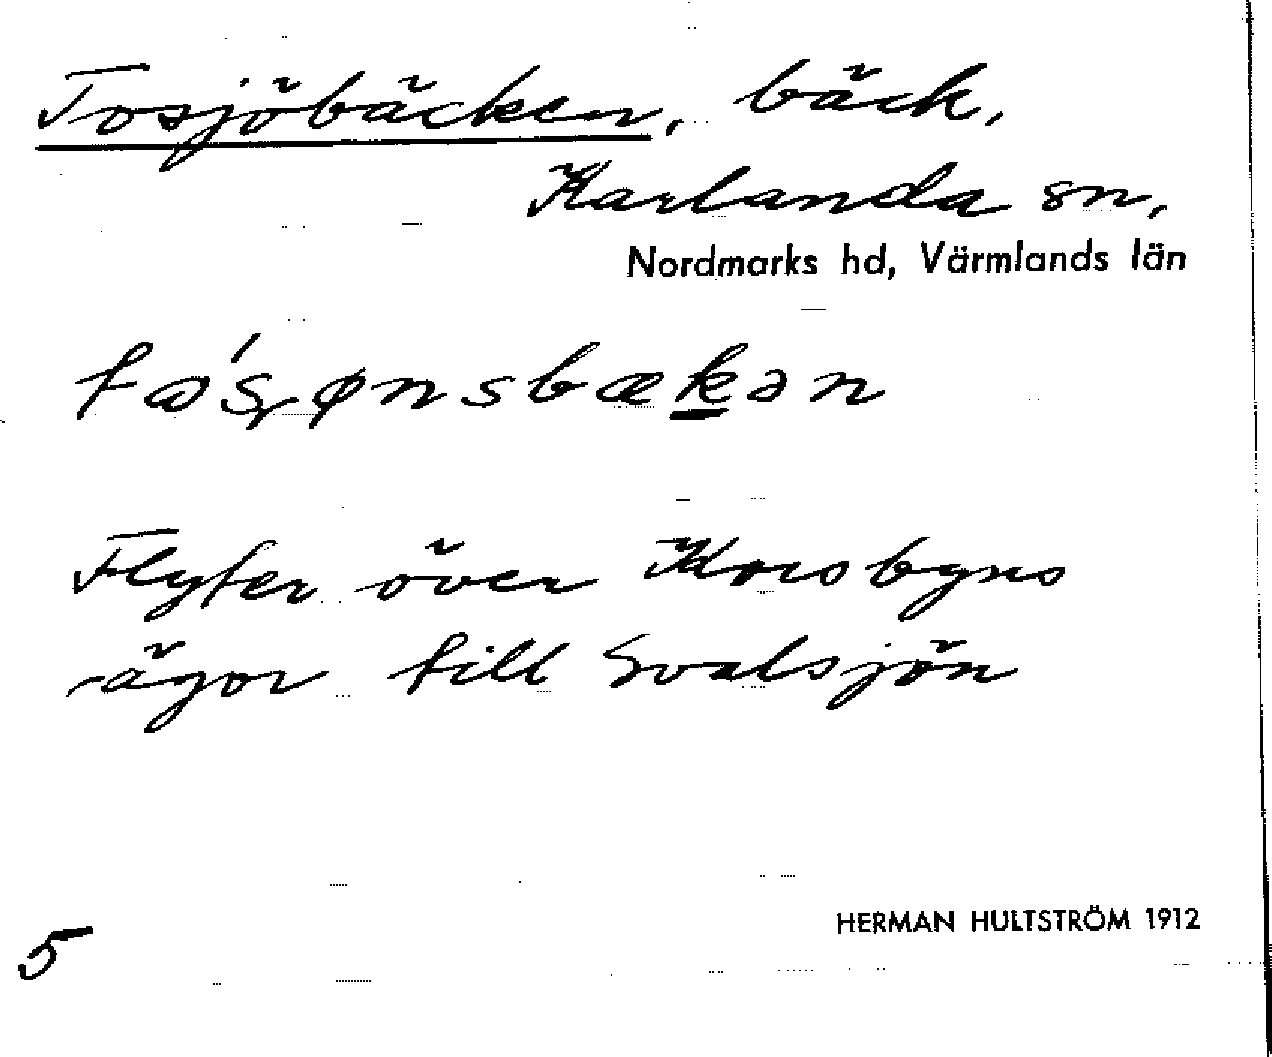 Tosjöbäcken, bäck,
Karlanda sn,
Nordmarks hd, Värmlands län
Flyter över Korsbyns
ägor till Svalsjön
HERMAN HULTSTRÖM 1912
5